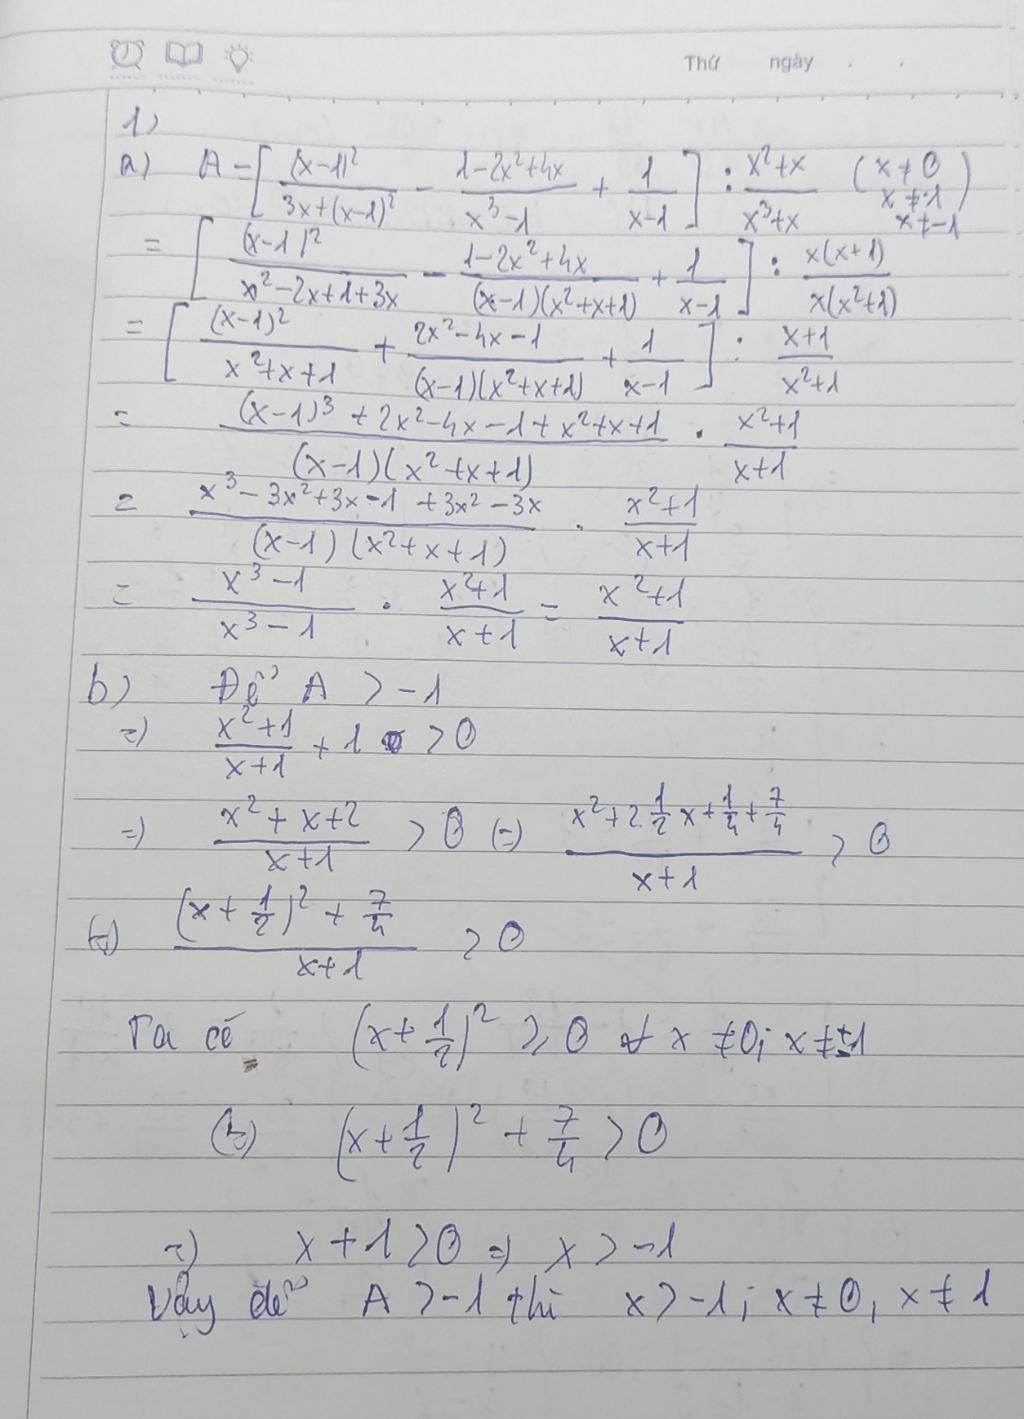 Thứ ngày
1)
a) A = [ (x-1)²/(3x+(x-1)²) - (1-2x²+4x)/(x³-1) + 1/(x-1) ] : (x²+x)/(x³+x) (x≠0 x≠1 x≠-1)
= [ (x-1)²/(x²-2x+1+3x) - (1-2x²+4x)/((x-1)(x²+x+1)) + 1/(x-1) ] : x(x+1)/(x(x²+1))
= [ (x-1)²/(x²+x+1) + (2x²-4x-1)/((x-1)(x²+x+1)) + 1/(x-1) ] : (x+1)/(x²+1)
= ((x-1)³+2x²-4x-1+x²+x+1)/((x-1)(x²+x+1)) . (x²+1)/(x+1)
= (x³-3x²+3x-1+3x²-3x)/((x-1)(x²+x+1)) . (x²+1)/(x+1)
= (x³-1)/(x³-1) . (x²+1)/(x+1) = (x²+1)/(x+1)
b) Để A > -1
=) (x²+1)/(x+1) + 1 > 0
=) (x²+x+2)/(x+1) > 0 (=) (x²+2.1/2x+1/4+7/4)/(x+1) > 0
(=) ((x+1/2)²+7/4)/(x+1) > 0
Ta có (x+1/2)² ≥ 0 ∀ x ≠0; x≠±1
(=) (x+1/2)² + 7/4 > 0
=) x+1 > 0 =) x > -1
Vậy để A > -1 thì x > -1; x≠0, x≠1